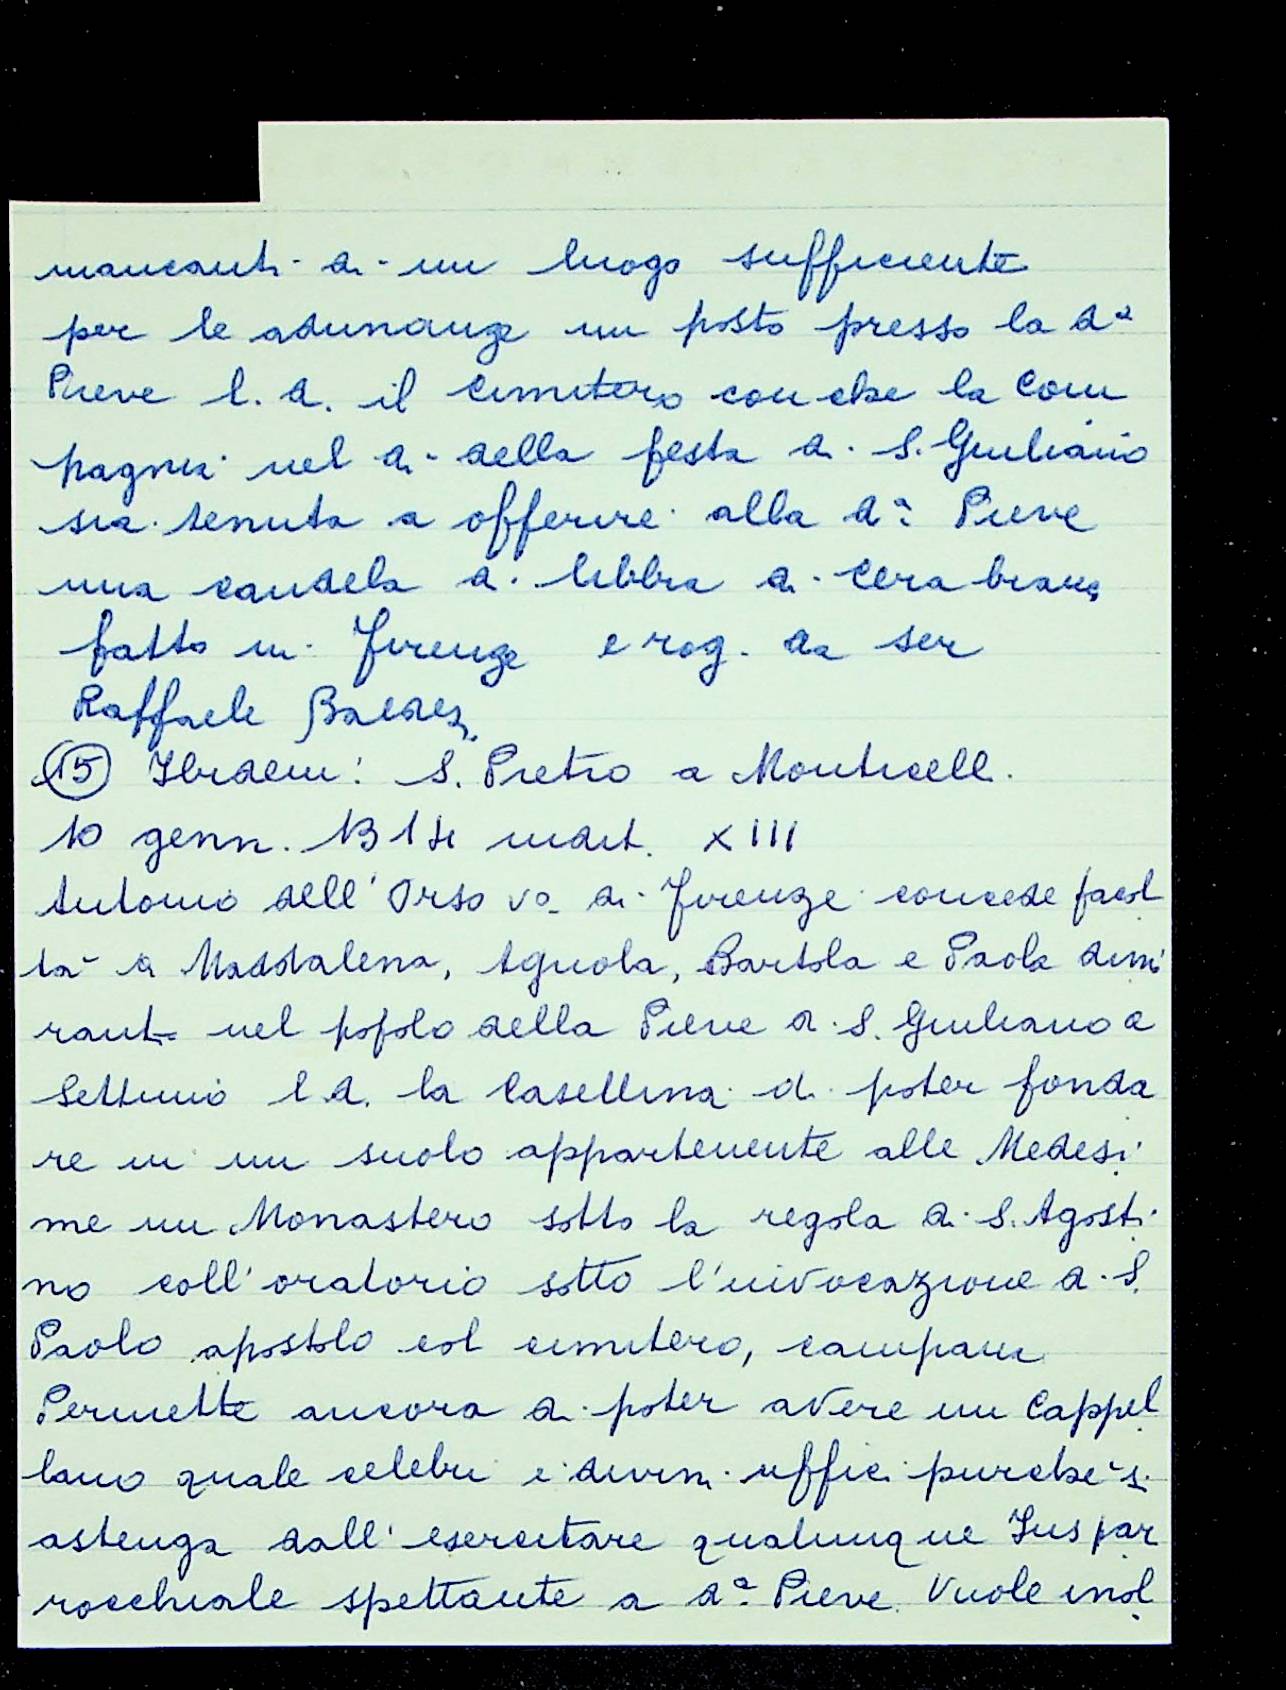 mancanti di un luogo sufficiente
per le adunanze un posto presso la da
Pieve l.d. il Cimitero con che la Com
pagnia nel dì della festa di S. Giuliano
sia tenuta a offerire alla da: Pieve
una candela di libbra di cera bianca
fatto in Firenze e rog. da ser
Raffaele
(15) Ibidem: S. Pietro a Monticelli.
10 genn. 1314 indit. XIII
Antonio dell'Orso vo di Firenze concede facol
tà a Maddalena, Agnola, Bartola e Paola dimo
ranti nel popolo della Pieve di S. Giuliano a
Settimo l.d. la Casellina di poter fonda
re in un suolo appartenente alle Medesi
me un Monastero sotto la regola di S. Agosti
no coll'oratorio sotto l'invocazione di S.
Paolo apostolo col cimitero, campane
Permette ancora di poter avere un Cappel
lano quale celebri i divini uffici purchè si
astenga dall'esercitare qualunque Jus par
rocchiale spettante a da: Pieve. Vuole inol